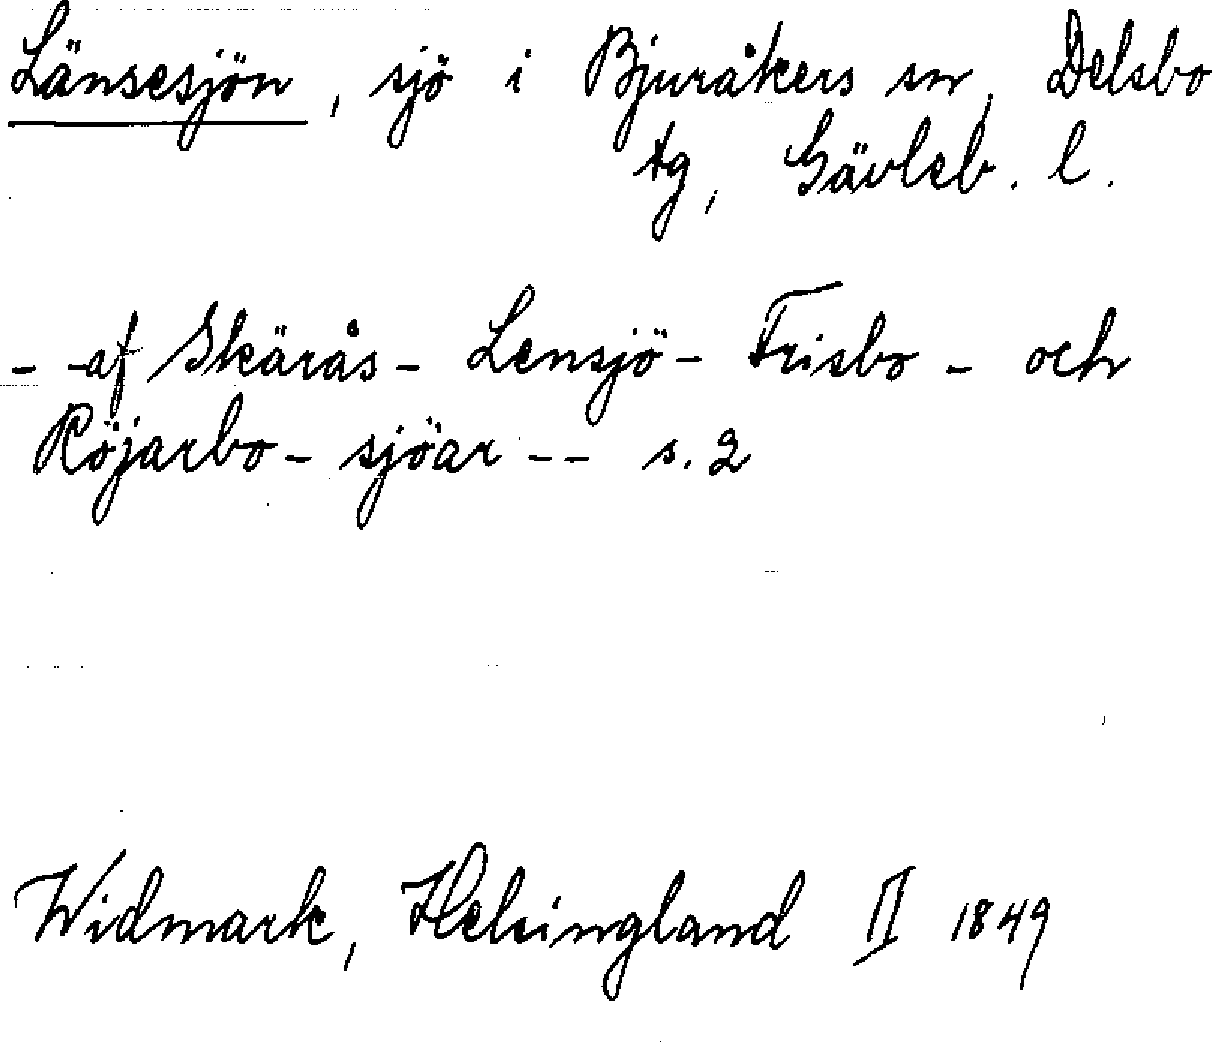 Länsesjön, sjö i Bjuråkers sn, Delsbo
tg, Gävleb. l.
- -af Skärås- Lensjö- Frisbo- och
Röjarbo- sjöar -- s. 2
Widmark, Helsingland II 1849